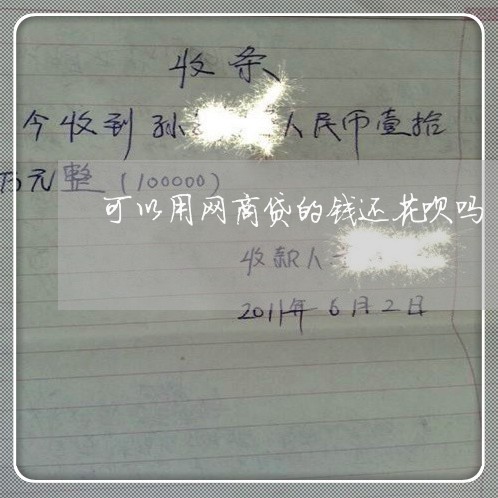 收条
今收到孙 人民币壹拾
万元整(100000)
可以用网商贷的钱还花呗吗
收款人
2011年6月2日